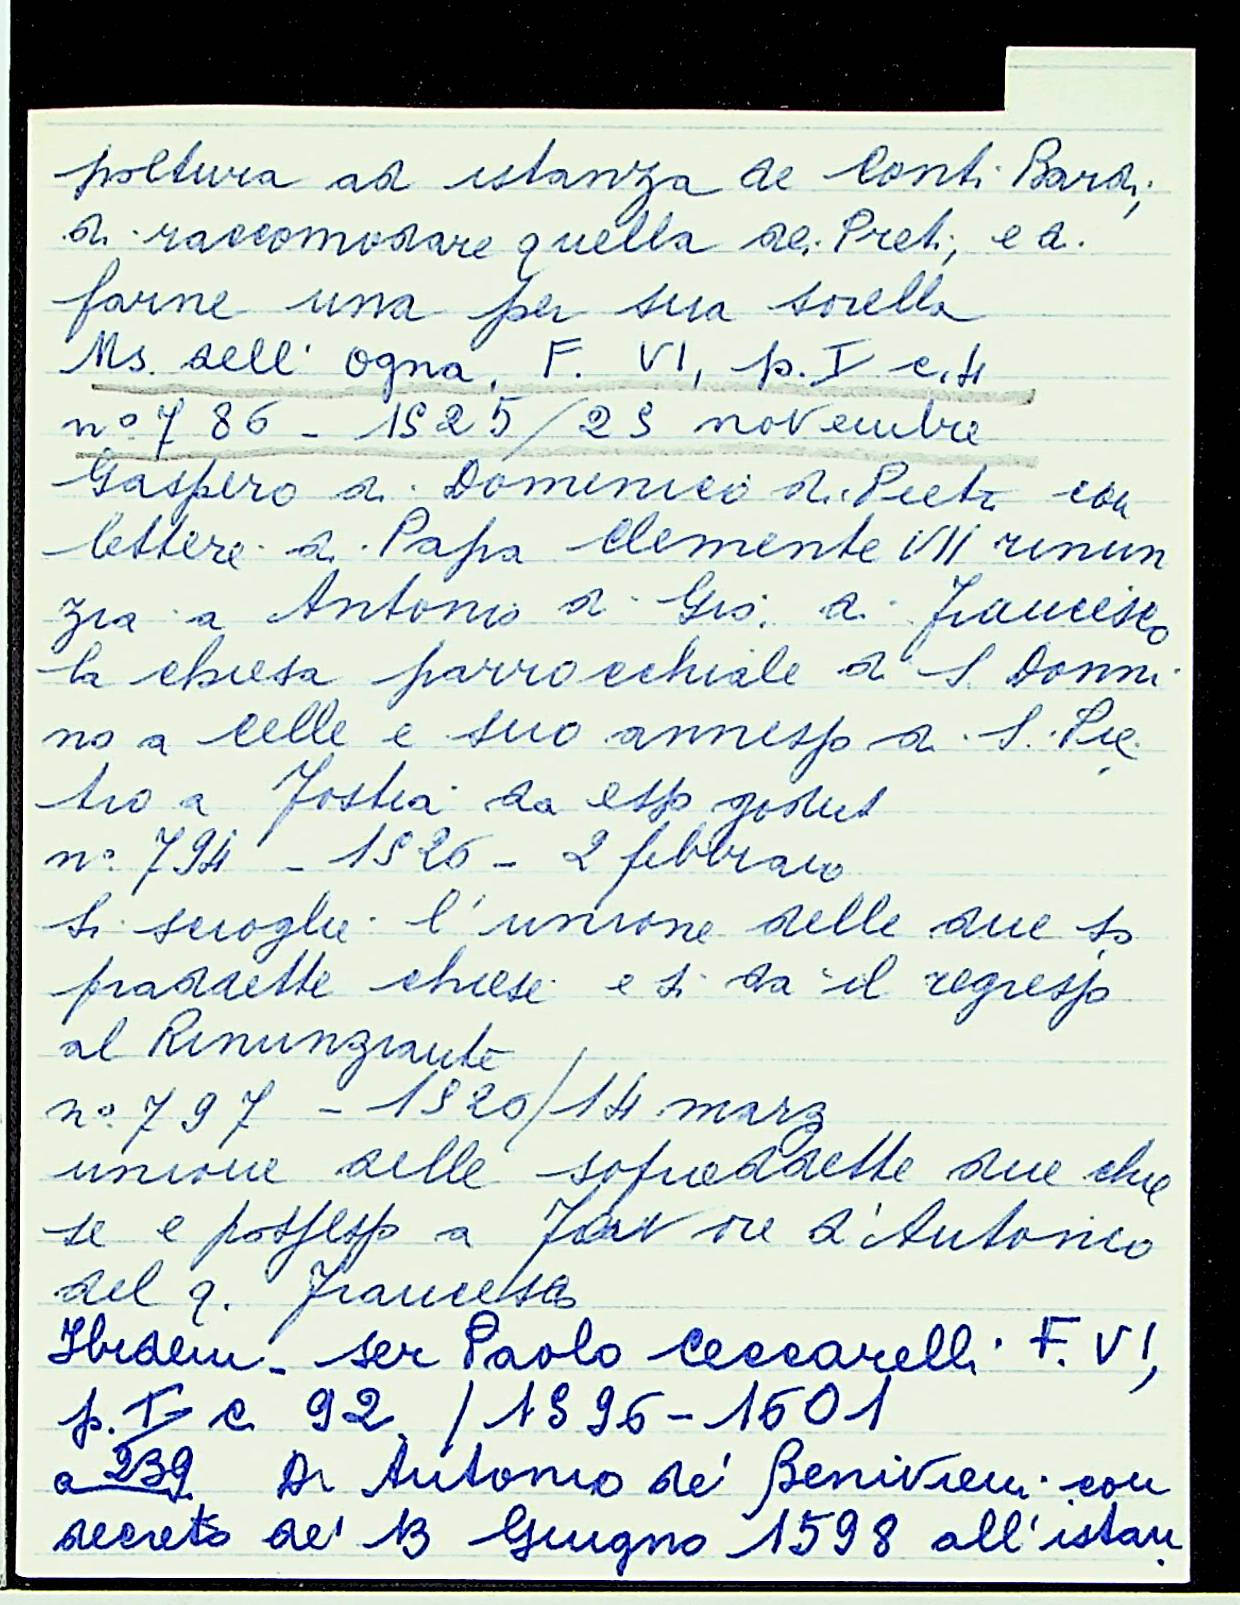 poltura ad istanza de Conti Bardi,
di raccomodare quella dei Preti, e di
farne una per sua sorella
Ms. dell' Ogna, F. VI, p. I c. 4
n° 786 - 1525/23 novembre
Gaspero di Domenico di con
lettere di Papa Clemente VII rinun
zia a Antonio di Gio. di Francesco
la chiesa parrocchiale di S. Donni
no a Celle e suo annesso di S. Pie
tro a Jostra da esso godut
n° 794 - 1526 - 2 febbraio
si scioglie l'unione delle due so
praddette chiese e si da il regresso
al Rinunziante
n° 797 - 1526/14 marz
unione delle sopraddette due chie
se e possesso a d'Antonio
del q. Francesco
Ibidem - ser Paolo Ceccarelli F. VI,
p. I c. 92 / 1596-1601
a 239 Di Antonio de' Benivieni con
decreto de' 13 Giugno 1598 all'istan